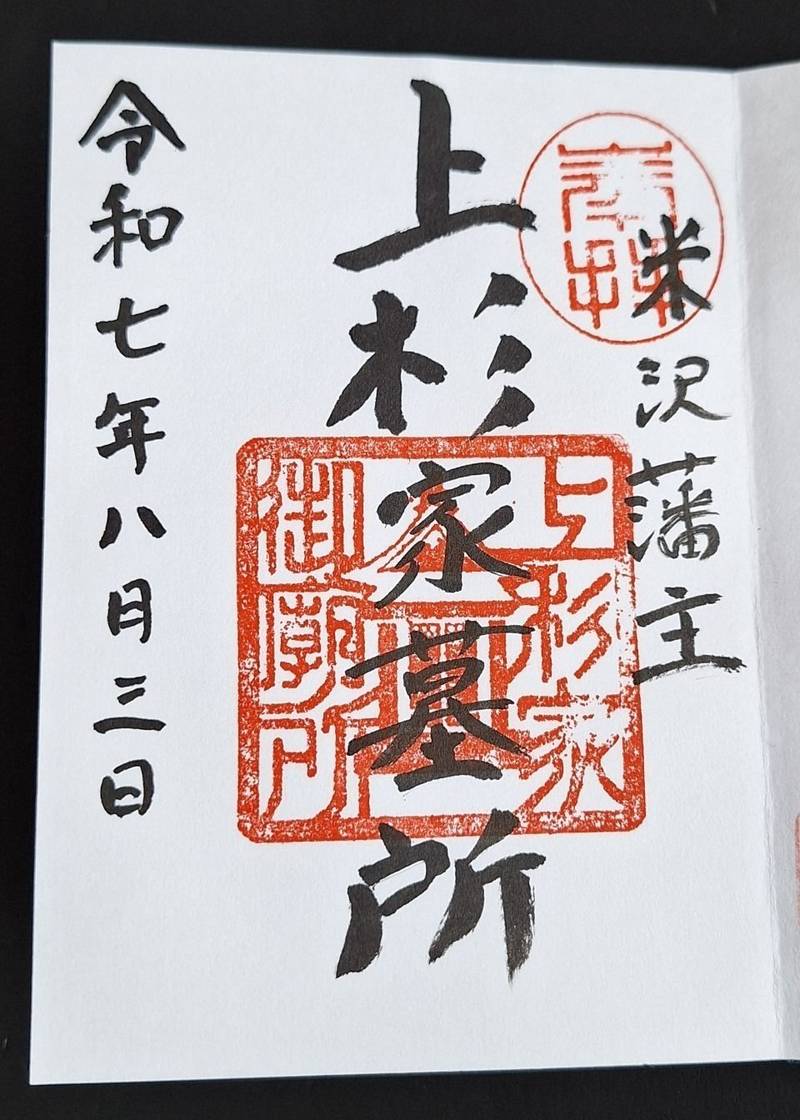 奉拝
米沢藩主
上杉家墓所
上杉家
御廟所
令和七年八月三日